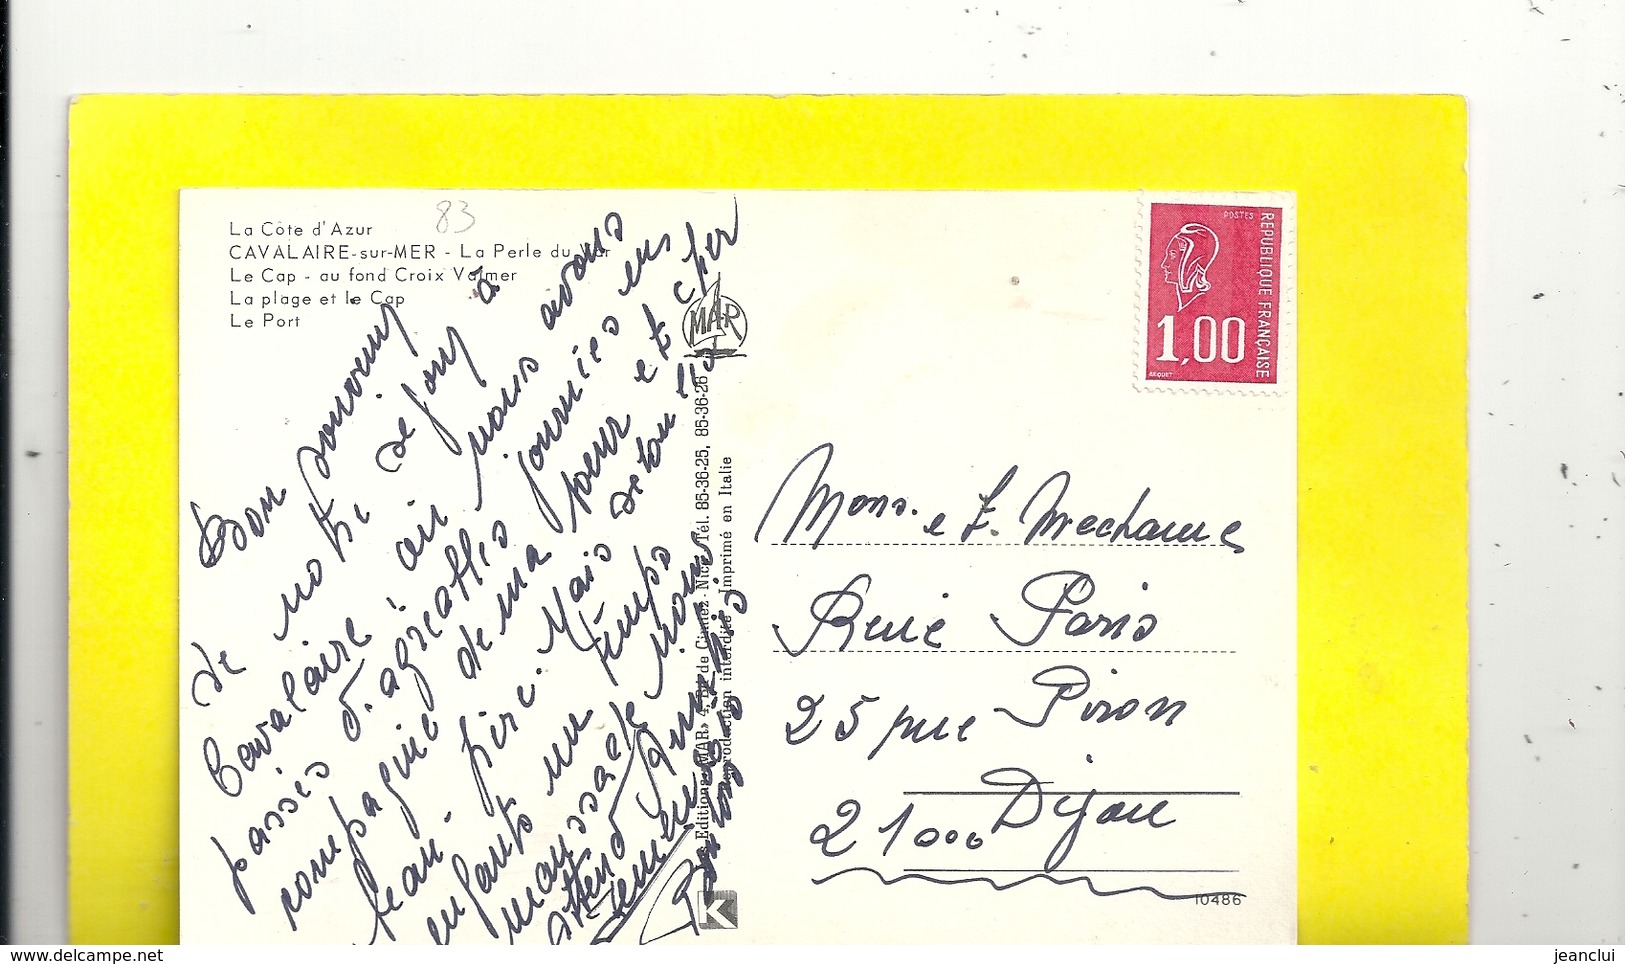 La Côte d'Azur
CAVALAIRE-sur-MER - La Perle du Var
Le Cap - au fond Croix Valmer
La plage et le Cap
Le Port
83
Bon souvenir
de notre séjour à
Cavalaire où nous avons
passés d'agréables journées en
compagnie de ma soeur et cher
beau-frère. Mais
enfants un temps
maussade nous
attend
MAR
Editions «MAR» de Cimiez - Nice Tél. 85-36-25, 85-36-26
reproduction interdite Imprimé en Italie
K
POSTES
REPUBLIQUE FRANÇAISE
1,00
BEQUET
Mons. e t. Mechame
René Paris
25 rue Piron
21000 Dijon
10486
delcampe.net
jeanclui